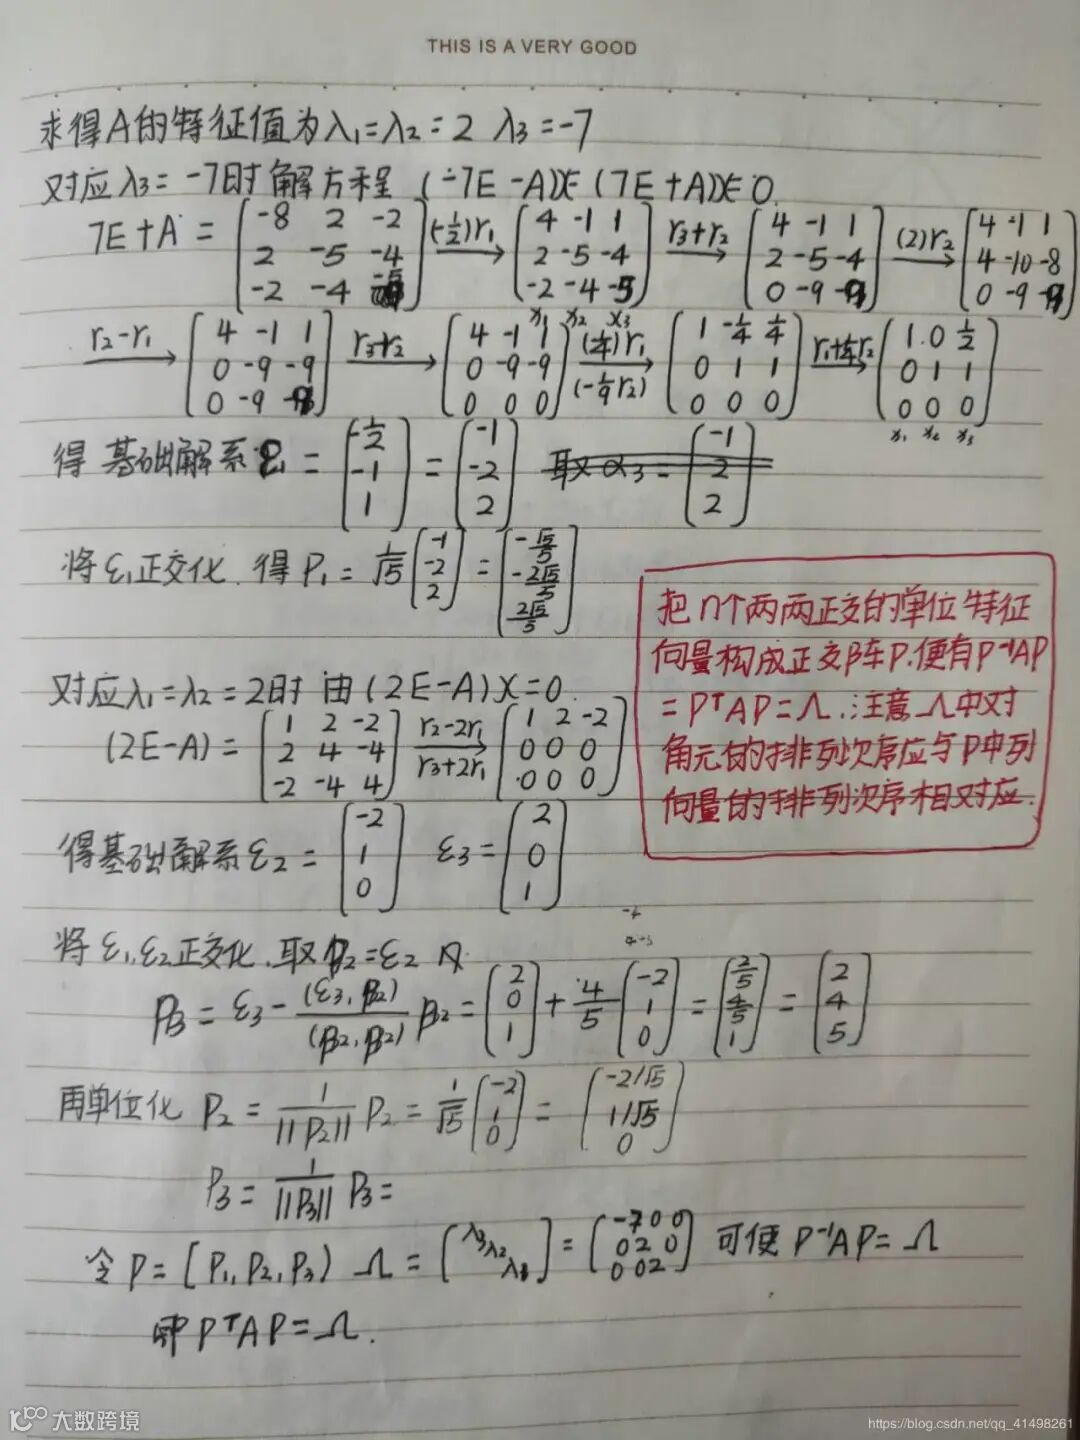 THIS IS A VERY GOOD
求得A的特征值为λ₁=λ₂=2 λ₃=-7
对应λ₃=-7时解方程 (-7E-A)X=(7E+A)X=0
7E+A = [-8 2 -2; 2 -5 -4; -2 -4 -5] (-1/2)r₁→ [4 -1 1; 2 -5 -4; -2 -4 -5] r₃+r₂→ [4 -1 1; 2 -5 -4; 0 -9 -9] (2)r₂→ [4 -1 1; 4 -10 -8; 0 -9 -9]
r₂-r₁→ [4 -1 1; 0 -9 -9; 0 -9 -9] r₃+r₂→ [4 -1 1; 0 -9 -9; 0 0 0] (1/4)r₁ (-1/9 r₂)→ [1 -1/4 1/4; 0 1 1; 0 0 0] r₁+1/4r₂→ [1 0 1/2; 0 1 1; 0 0 0]
x₁ x₂ x₃
x₁ x₂ x₃
得 基础解系 ε₁ = [-1/2; -1; 1] = [-1; -2; 2] 取α₃= [-1; 2; 2]
将ε₁正交化.得P₁ = 1/√5 [-1; -2; 2] = [-√5/5; -2√5/5; 2√5/5]
把n个两两正交的单位特征
向量构成正交阵P.便有P⁻¹AP
=PᵀAP=Λ.注意Λ中对
角元的排列次序应与P中列
向量的排列次序相对应.
对应λ₁=λ₂=2时 由(2E-A)X=0.
(2E-A) = [1 2 -2; 2 4 -4; -2 -4 4] r₂-2r₁ r₃+2r₁→ [1 2 -2; 0 0 0; 0 0 0]
得基础解系ε₂ = [-2; 1; 0] ε₃= [2; 0; 1]
将ε₁,ε₂正交化.取β₂=ε₂
β₃ = ε₃ - (ε₃,β₂)/(β₂,β₂) β₂ = [2; 0; 1] + 4/5 [-2; 1; 0] = [2/5; 4/5; 1] = [2; 4; 5]
再单位化 P₂ = 1/||P₂|| P₂ = 1/√5 [-2; 1; 0] = [-2/√5; 1/√5; 0]
P₃ = 1/||P₃|| P₃ =
令P=[P₁,P₂,P₃) Λ = [λ₃ λ₂ λ₁] = [-7 0 0; 0 2 0; 0 0 2] 可使P⁻¹AP=Λ
即PᵀAP=Λ.
大数跨境
https://blog.csdn.net/qq_41498261